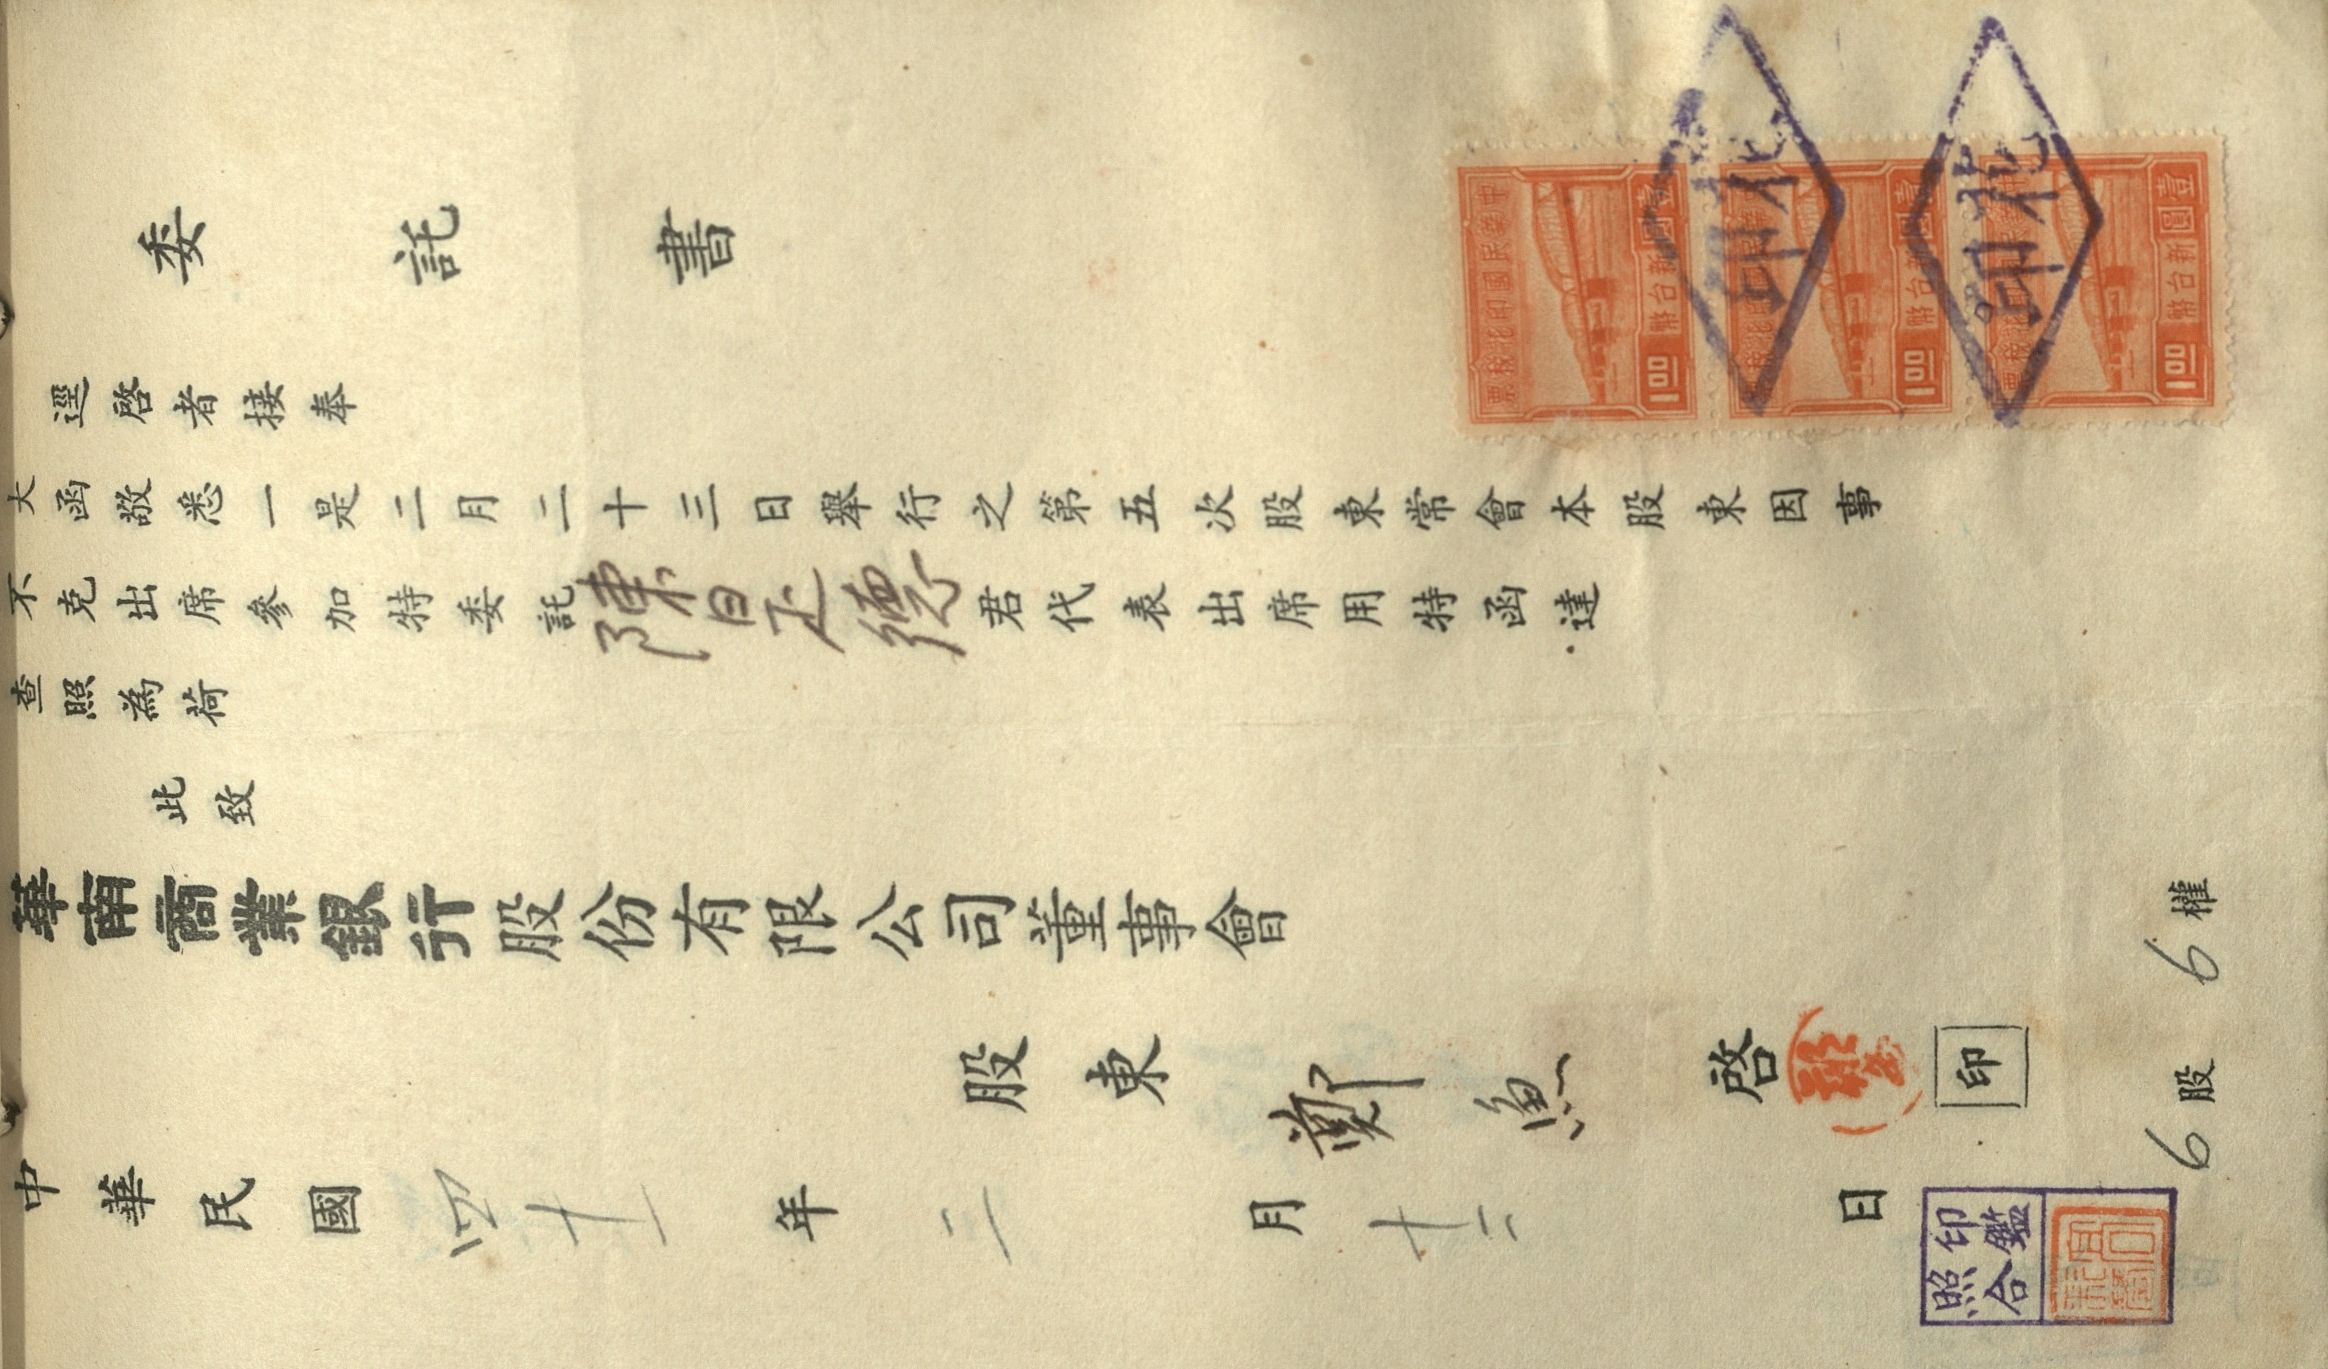 委託書
逕啓者接奉
大函敬悉一是二月二十三日舉行之第五次股東常會本股東因事
不克出席參加特委託陳呈德君代表出席用特函達
查照為荷
此致
華南商業銀行股份有限公司董事會
股東 鄭 啓 印
中華民國四十一年二月十二日
6股 6權
中華民國印花稅票
壹圓新台幣
1.00
壹圓新台幣
1.00
壹圓新台幣
1.00
印花
印花
印鑑
照合